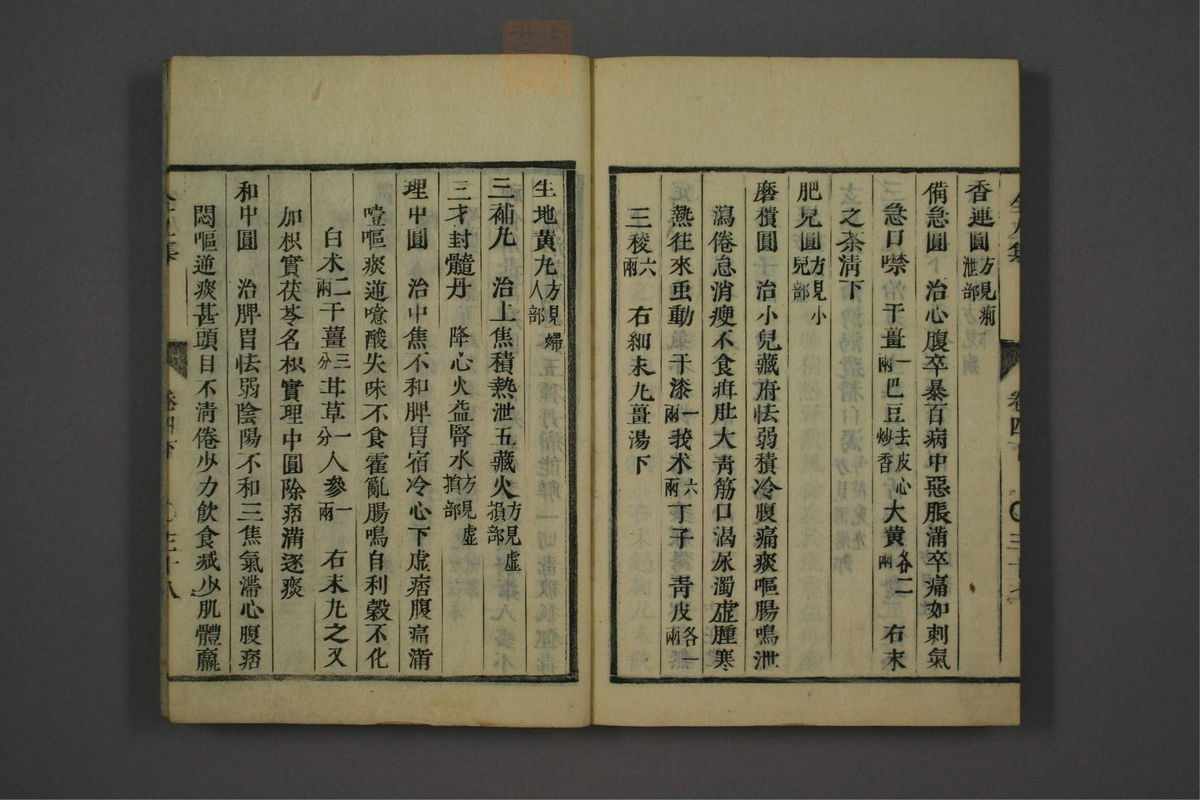 香連圓方見痢泄部
備急圓　治心腹卒暴百病中惡脹滿卒痛如刺氣
急口噤　干薑一兩巴豆去皮心炒香大黄各二兩　右末
之茶清下
肥兒圓方見小兒部
磨積圓　治小兒藏府怯弱積冷腹痛痰嘔腸鳴泄
瀉倦怠消瘦不食疳肚大青筋口渴尿濁虛腫寒
熱往來蚘動　干漆一兩莪术六兩丁子　青皮各一兩
三稜六兩　右細末丸薑湯下
卷四下
生地黄丸方見婦人部
三補丸　治上焦積熱泄五藏火方見虛損部
三才封髓丹　降心火益腎水方見虛損部
理中圓　治中焦不和脾胃宿冷心下虛痞腹痛滿
噎嘔痰逆噫酸失味不食霍亂腸鳴自利穀不化
白术二兩干薑三分甘草一分人參一兩　右末丸之又
加枳實茯苓名枳實理中圓除痞滿逐痰
和中圓　治脾胃怯弱陰陽不和三焦氣滯心腹痞
悶嘔逆痰甚頭目不清倦少力飲食減少肌體羸
卷四下　三十八